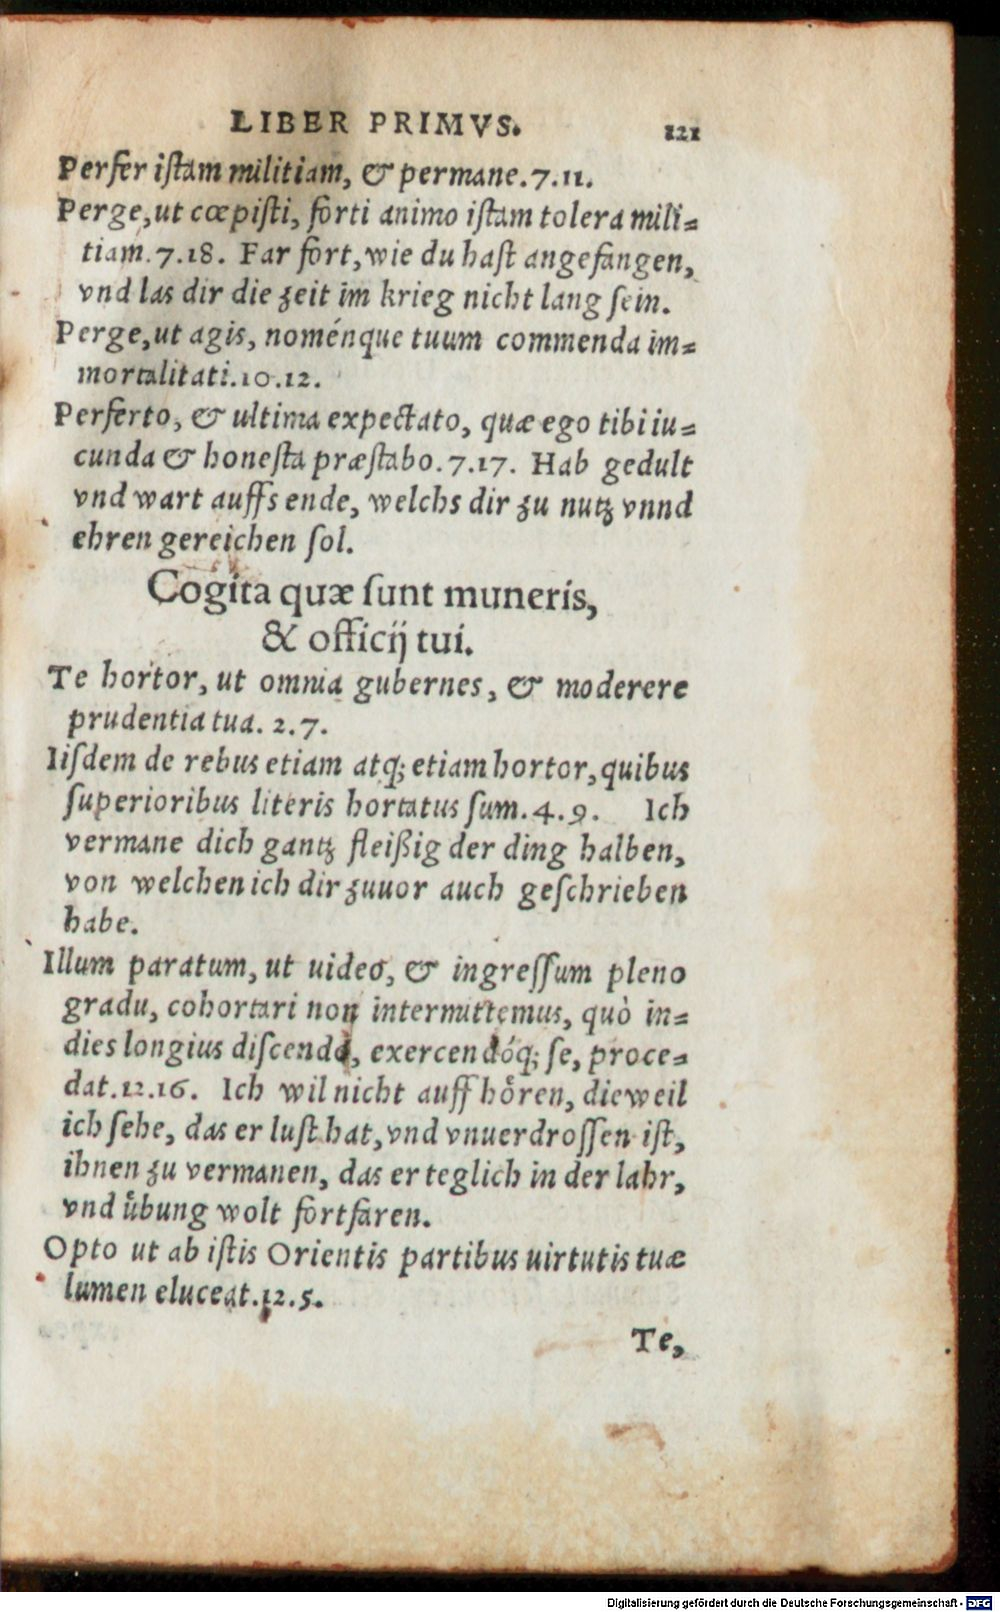 LIBER PRIMVS. 121
Perfer iſtam militiam, & permane. 7. 11.
Perge, ut cœpiſti, forti animo iſtam tolera mili⸗
tiam. 7. 18. Far fort, wie du haſt angefangen,
vnd las dir die zeit im krieg nicht lang ſein.
Perge, ut agis, noménque tuum commenda im⸗
mortalitati. 10. 12.
Perferto, & ultima expectato, quæ ego tibi iu⸗
cunda & honeſta præſtabo. 7. 17. Hab gedult
vnd wart auffs ende, welchs dir zu nutz vnnd
ehren gereichen ſol.
Cogita quæ ſunt muneris,
& officij tui.
Te hortor, ut omnia gubernes, & moderere
prudentia tua. 2. 7.
Iiſdem de rebus etiam atq; etiam hortor, quibus
ſuperioribus literis hortatus ſum. 4. 9. Ich
vermane dich gantz fleißig der ding halben,
von welchen ich dir zuuor auch geſchrieben
habe.
Illum paratum, ut uideo, & ingreſſum pleno
gradu, cohortari non intermittemus, quò in⸗
dies longius diſcendo, exercendóq; ſe, proce⸗
dat. 12. 16. Ich wil nicht auff hoͤren, dieweil
ich ſehe, das er luſt hat, vnd vnuerdroſſen iſt,
ihnen zu vermanen, das er teglich in der lahr,
vnd uͤbung wolt fortfaren.
Opto ut ab iſtis Orientis partibus uirtutis tuæ
lumen eluceat. 12. 5.
Te,
Digitalisierung gefördert durch die Deutsche Forschungsgemeinschaft - DFG